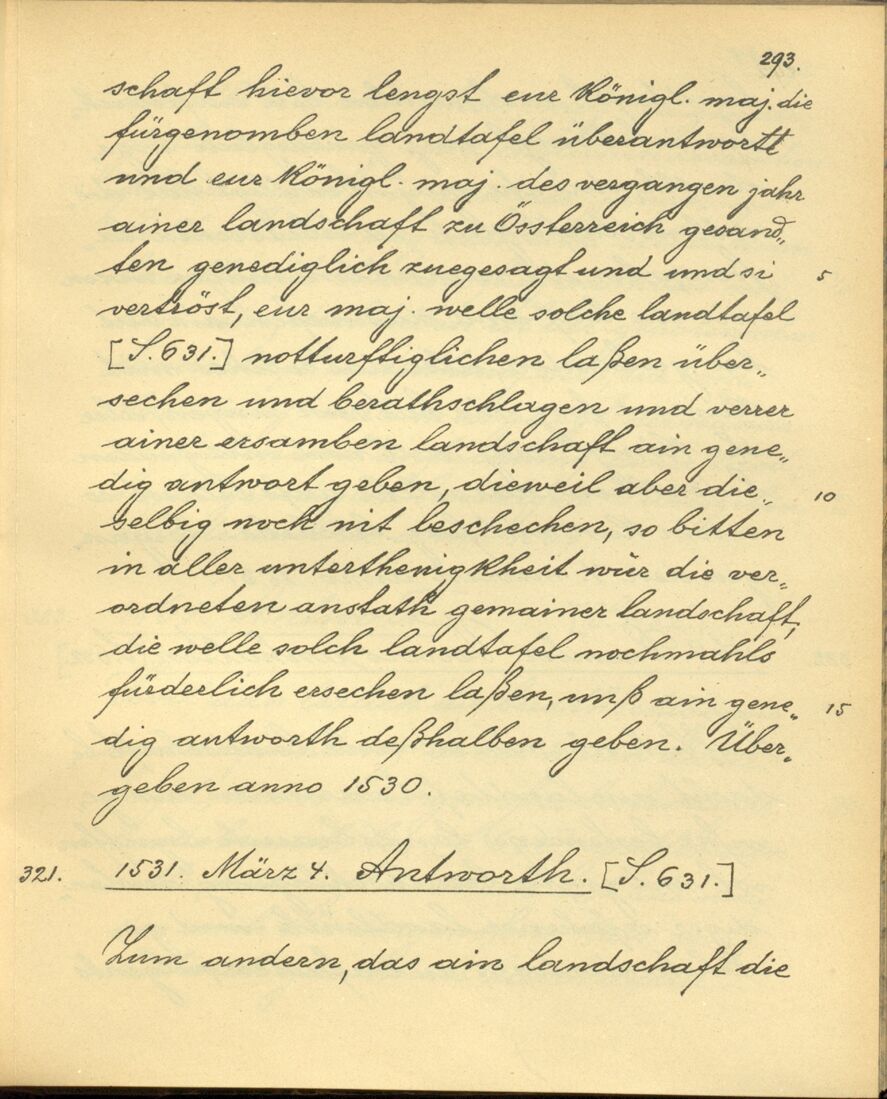 293.
schaft hievor lengst eur Königl. maj. die
fürgenomben landtafel überantwortt
und eur Königl. maj. des vergangen jahr
ainer landschaft zu Össterreich gesand„
ten genediglich zuegesagt und und si 5
vertröst, eur maj. welle solche landtafel
[S. 631.] notturftiglichen laßen über„
sechen und berathschlagen und verrer
ainer ersamben landschaft ain gene„
dig antwort geben, dieweil aber die„ 10
selbig noch nit beschechen, so bitten
in aller unterthenigkheit wür die ver„
ordneten anstath gemainer landschaft,
die welle solch landtafel nochmahls
fürderlich ersechen laßen, unß ain gene„ 15
dig antworth deßhalben geben. Über„
geben anno 1530.
321. 1531. März 4. Antworth. [S. 631.]
Zum andern, das ain landschaft die